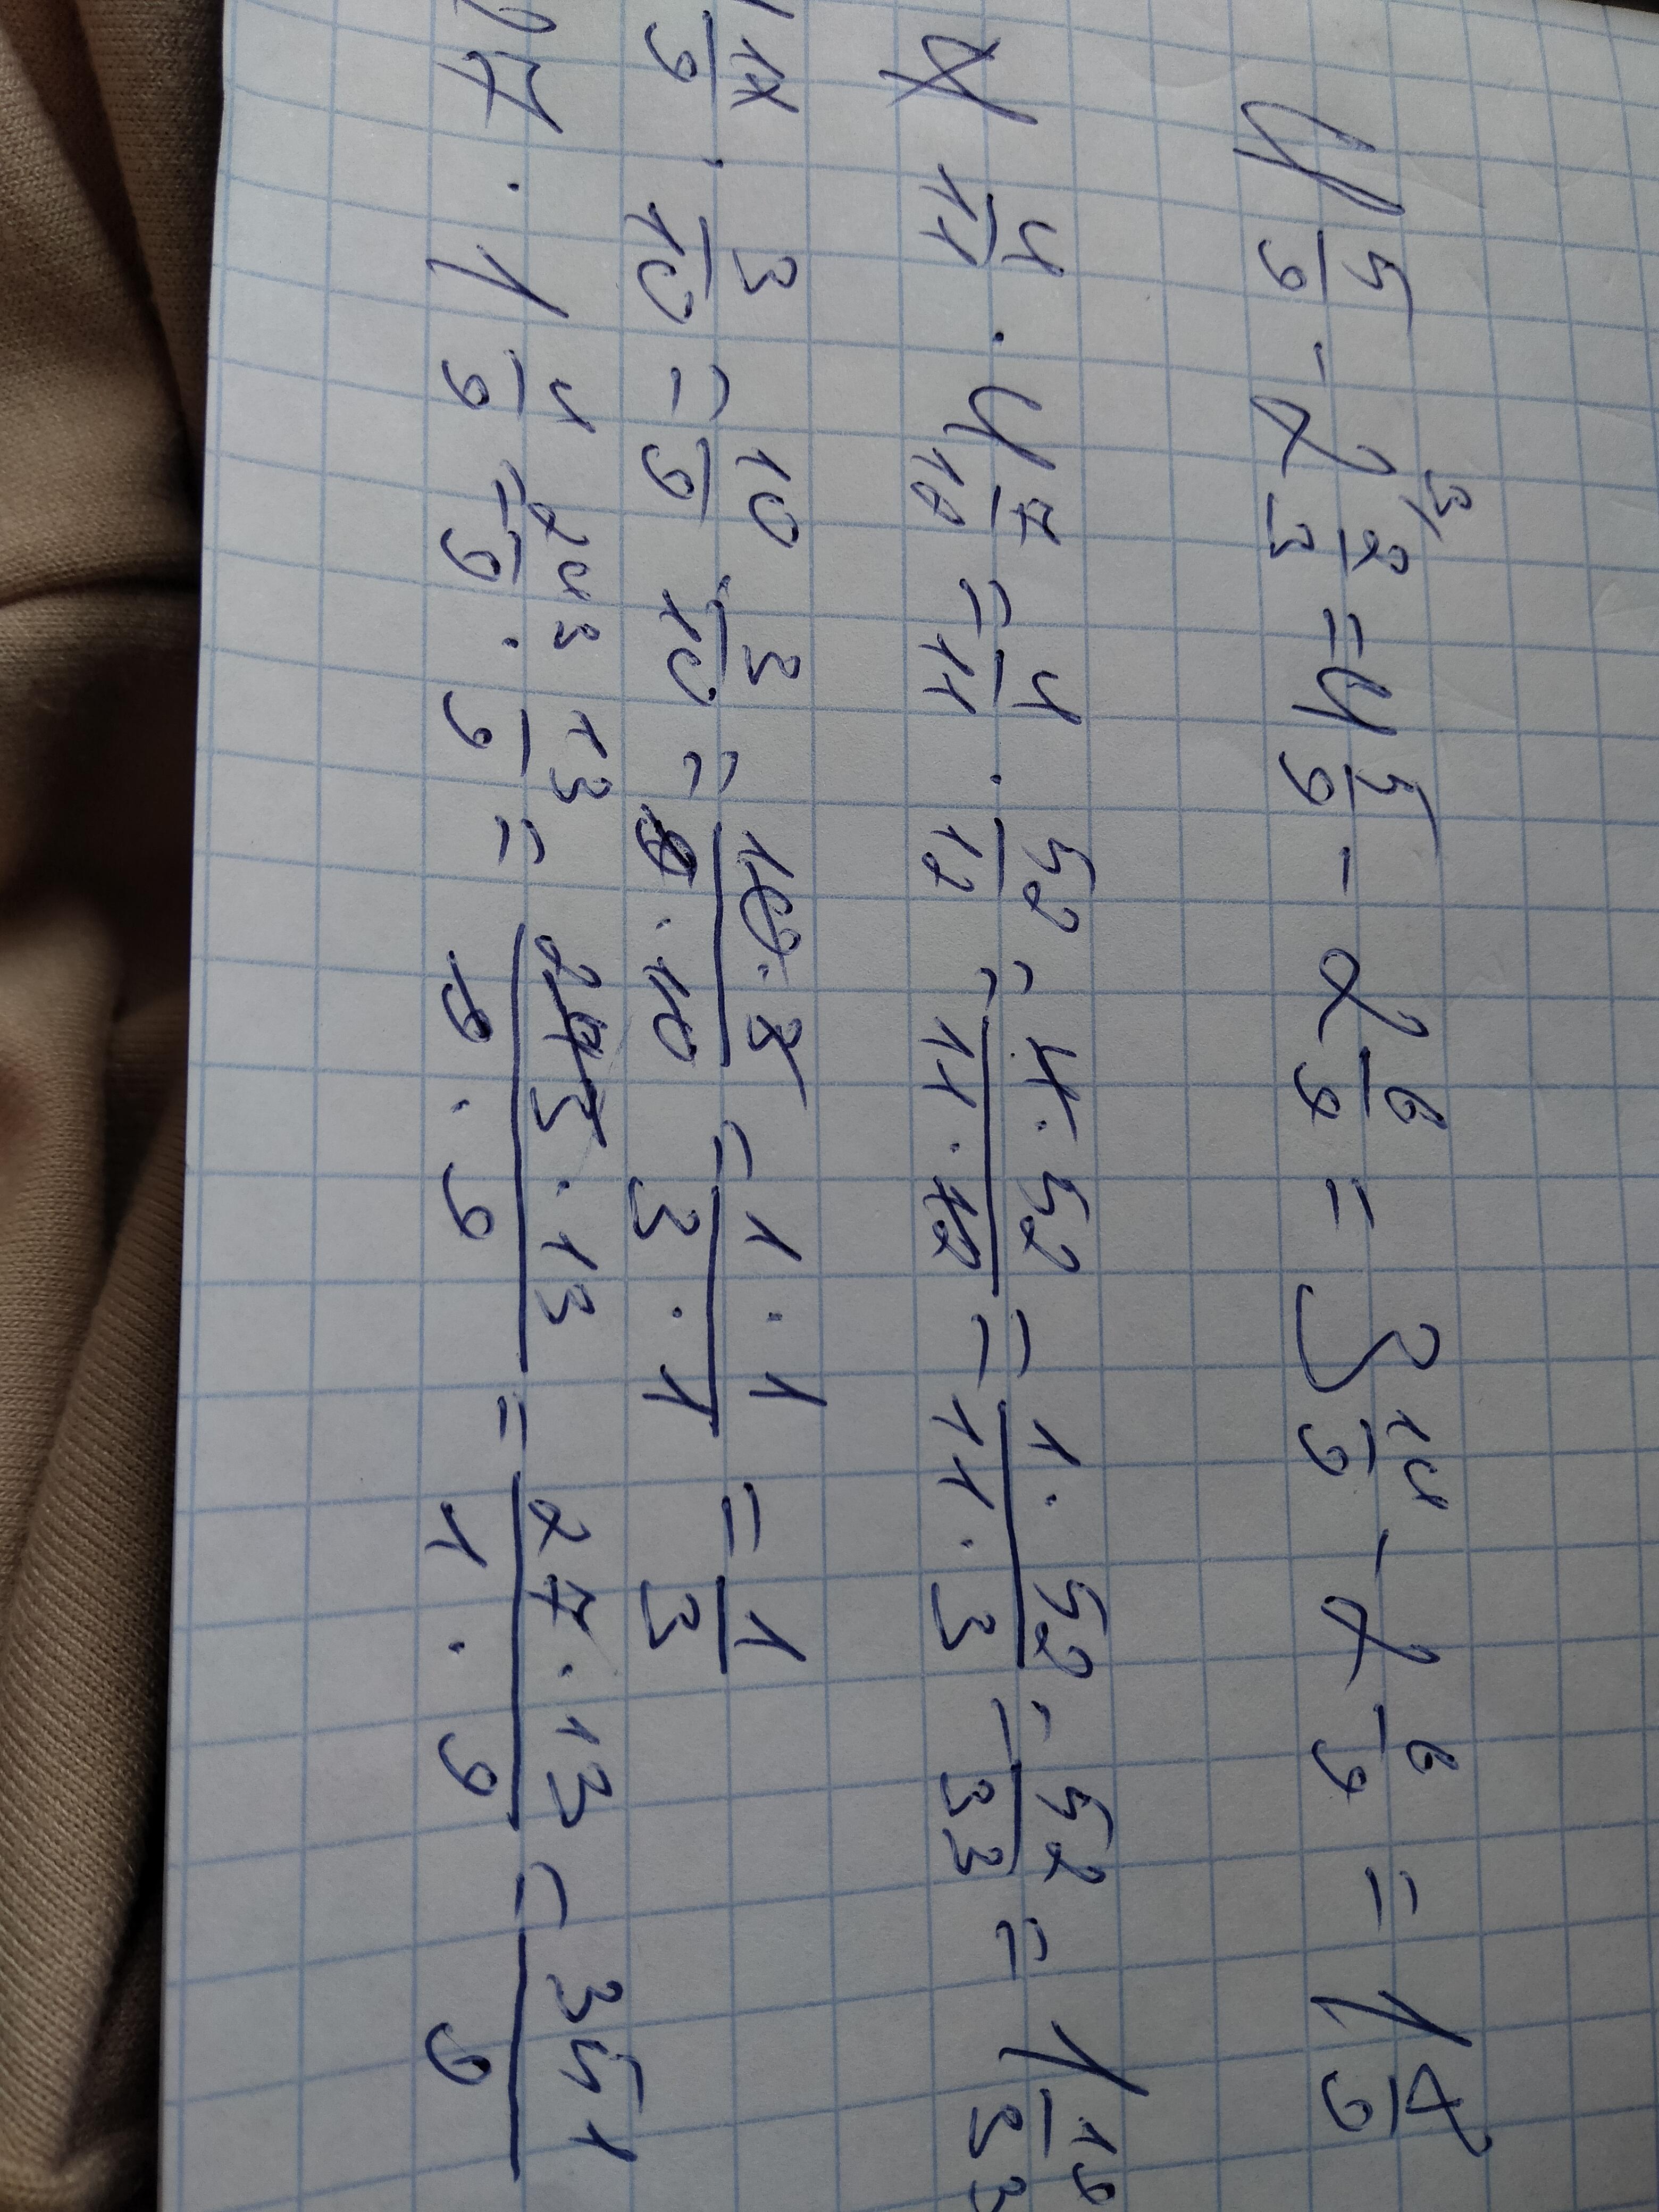 4 5/9 - 2 2/3 = 4 5/9 - 2 6/9 = 3 14/9 - 2 6/9 = 1 8/9
4/11 · 4 7/10 = 4/11 · 52/12 = 4·52/11·12 = 1·52/11·3 = 52/33 = 1 19/33
3/10 = 10/9 · 3/10 = 10·3/9·10 = 1·1/3·1 = 1/3
27 · 1 4/9 = 243/9 · 13/9 = 243·13/9·9 = 27·13/1·9 = 351/9